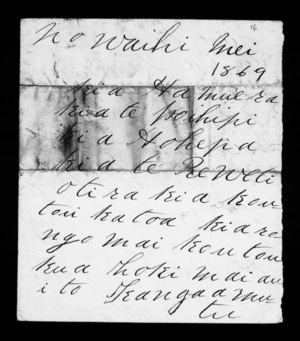 No Waihi Mei
1869
kia Hamuera
kia te Poihipi
kia Hohepa
kia te Reweti
otira kia kou
tou katoa kia ro
ngo mai koutou
kua hoki mai au
i to
tu